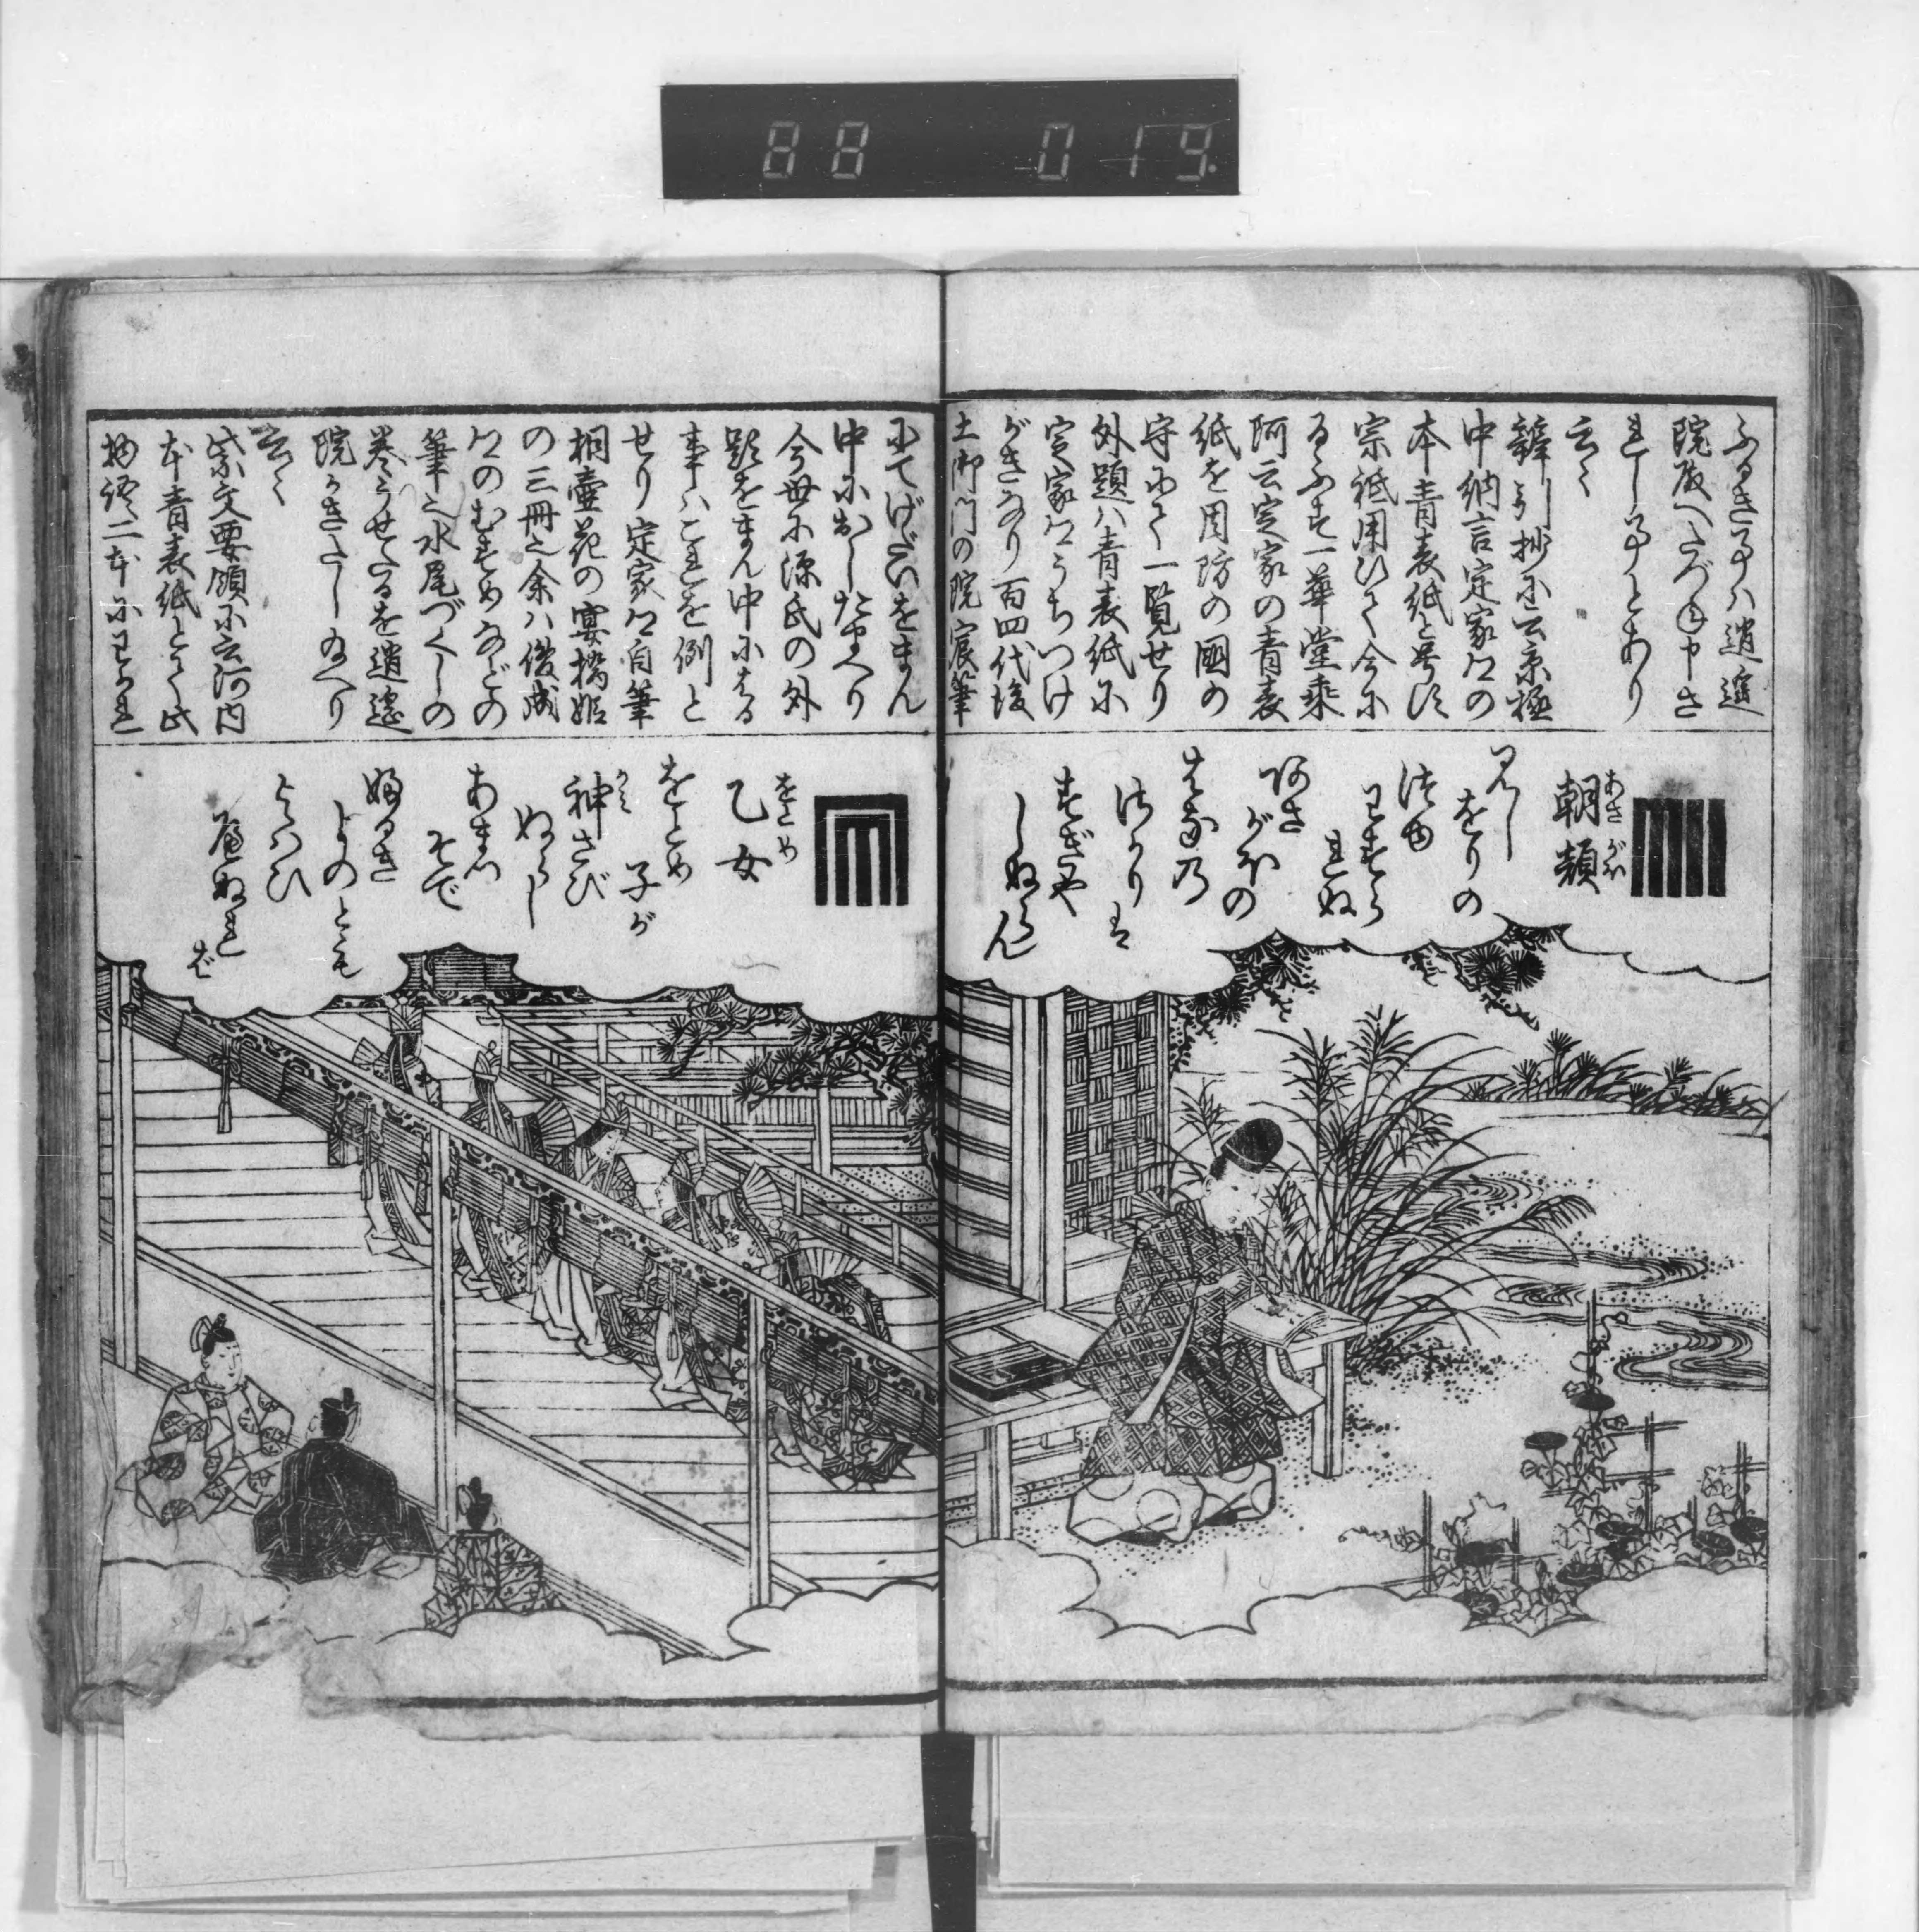 88 019
ふるき事ハ逍遥
院殿へたづね申さ
れし事とあり
云々
辨引抄に云京極
中納言定家卿の
本青表紙と号し
宗祗用ひて今に
るふす一華堂乗
阿云定家の青表
紙を周防の国の
守にて一覧せり
外題ハ青表紙に
定家卿うちつけ
がきなり百四代後
土御門の院宸筆
にてげだいをまん
中におしたまへり
今世に源氏の外
題をまん中にする
事ハこれを例と
せり定家卿自筆
桐壷花の宴橋姫
の三冊之余ハ俊成
卿のむすめなどの
筆之水尾づくしの
巻うせたるを逍遥
院かきたし給へり
云々
紫文要領に云河内
本青表紙とて此
物語二本にわかれ
朝顔
あさがほ
見し
をりの
つゆ
わすら
れぬ
あさ
がほの
はなの
さかりは
すぎや
しぬらん
乙女
をとめ
をとめ
子が
神さび
かみ
ぬらし
あまつ
そで
ふるき
よのとも
よはひ
へぬれ
ば